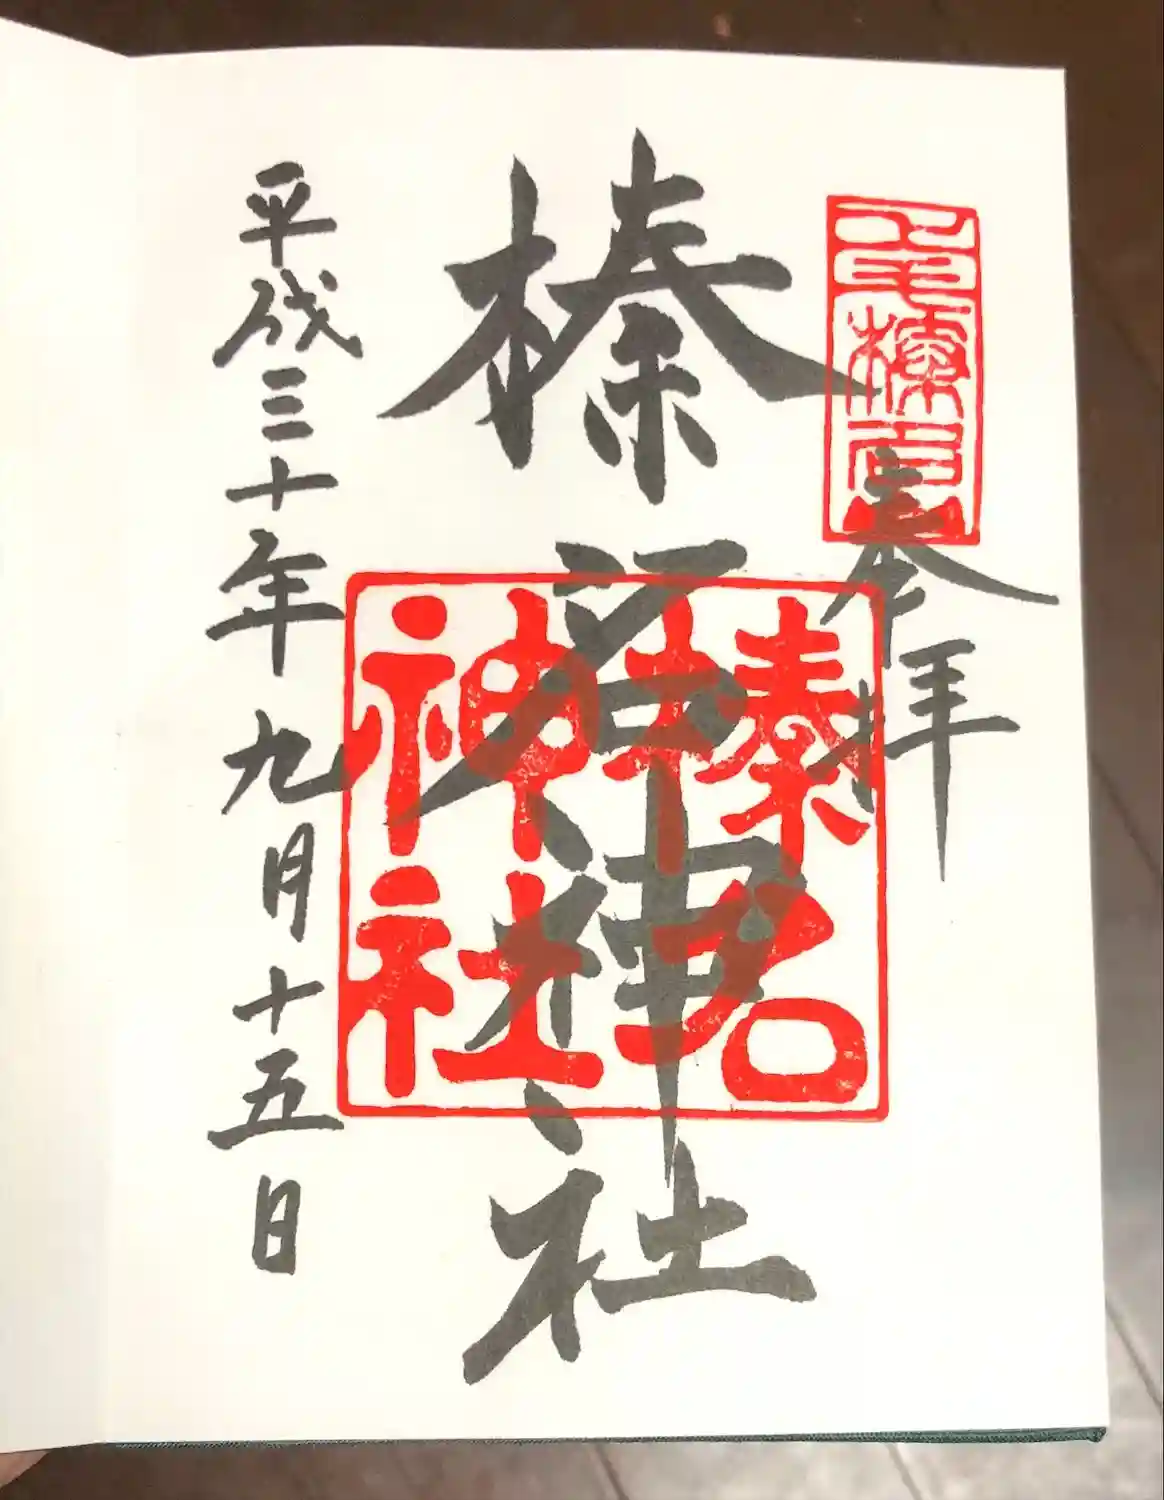 上毛榛名山
奉拝
榛名神社
榛名神社
平成三十年九月十五日